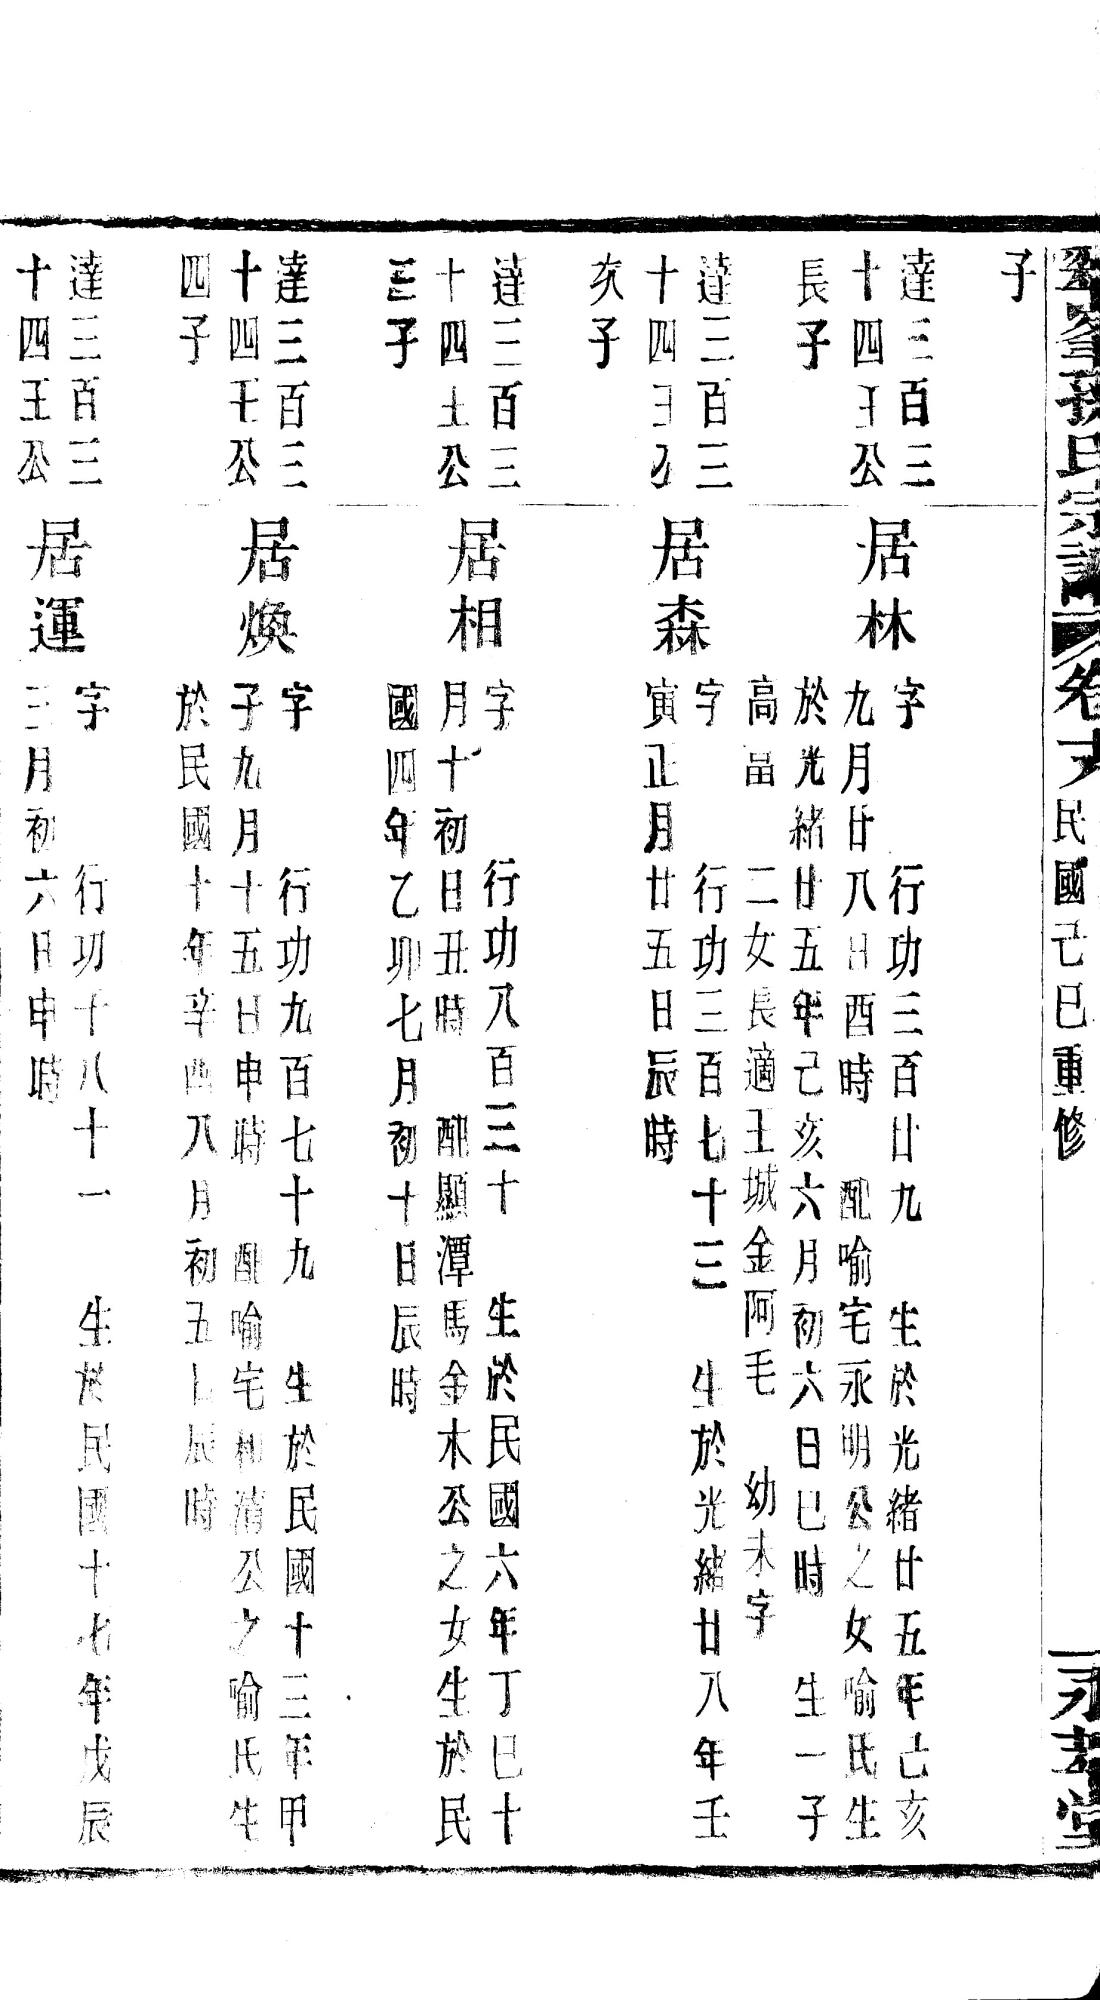 峯孫氏宗譜
卷
民國己巳重修
永
堂
子
達三百三
十四王公
長子
居林
字 行功三百廿九 生於光緒廿五年己亥
九月廿八日酉時 配喻宅永明公之女喻氏生
於光緒廿五年己亥六月初六日巳時 生一子
高畐 二女長適王城金阿毛 幼未字
達三百三
十四王公
次子
居森
字 行功三百七十三 生於光緒廿八年壬
寅正月廿五日辰時
達三百三
十四王公
三子
居相
字 行功八百三十 生於民國六年丁巳十
月十初日丑時 配顯潭馬金木公之女生於民
國四年乙卯七月初十日辰時
達三百三
十四王公
四子
居煥
字 行功九百七十九 生於民國十三年甲
子九月十五日申時 配喻宅和清公之喻氏生
於民國十年辛酉八月初五日辰時
達三百三
十四王公
居運
字 行功千八十一 生於民國十七年戊辰
三月初六日申時